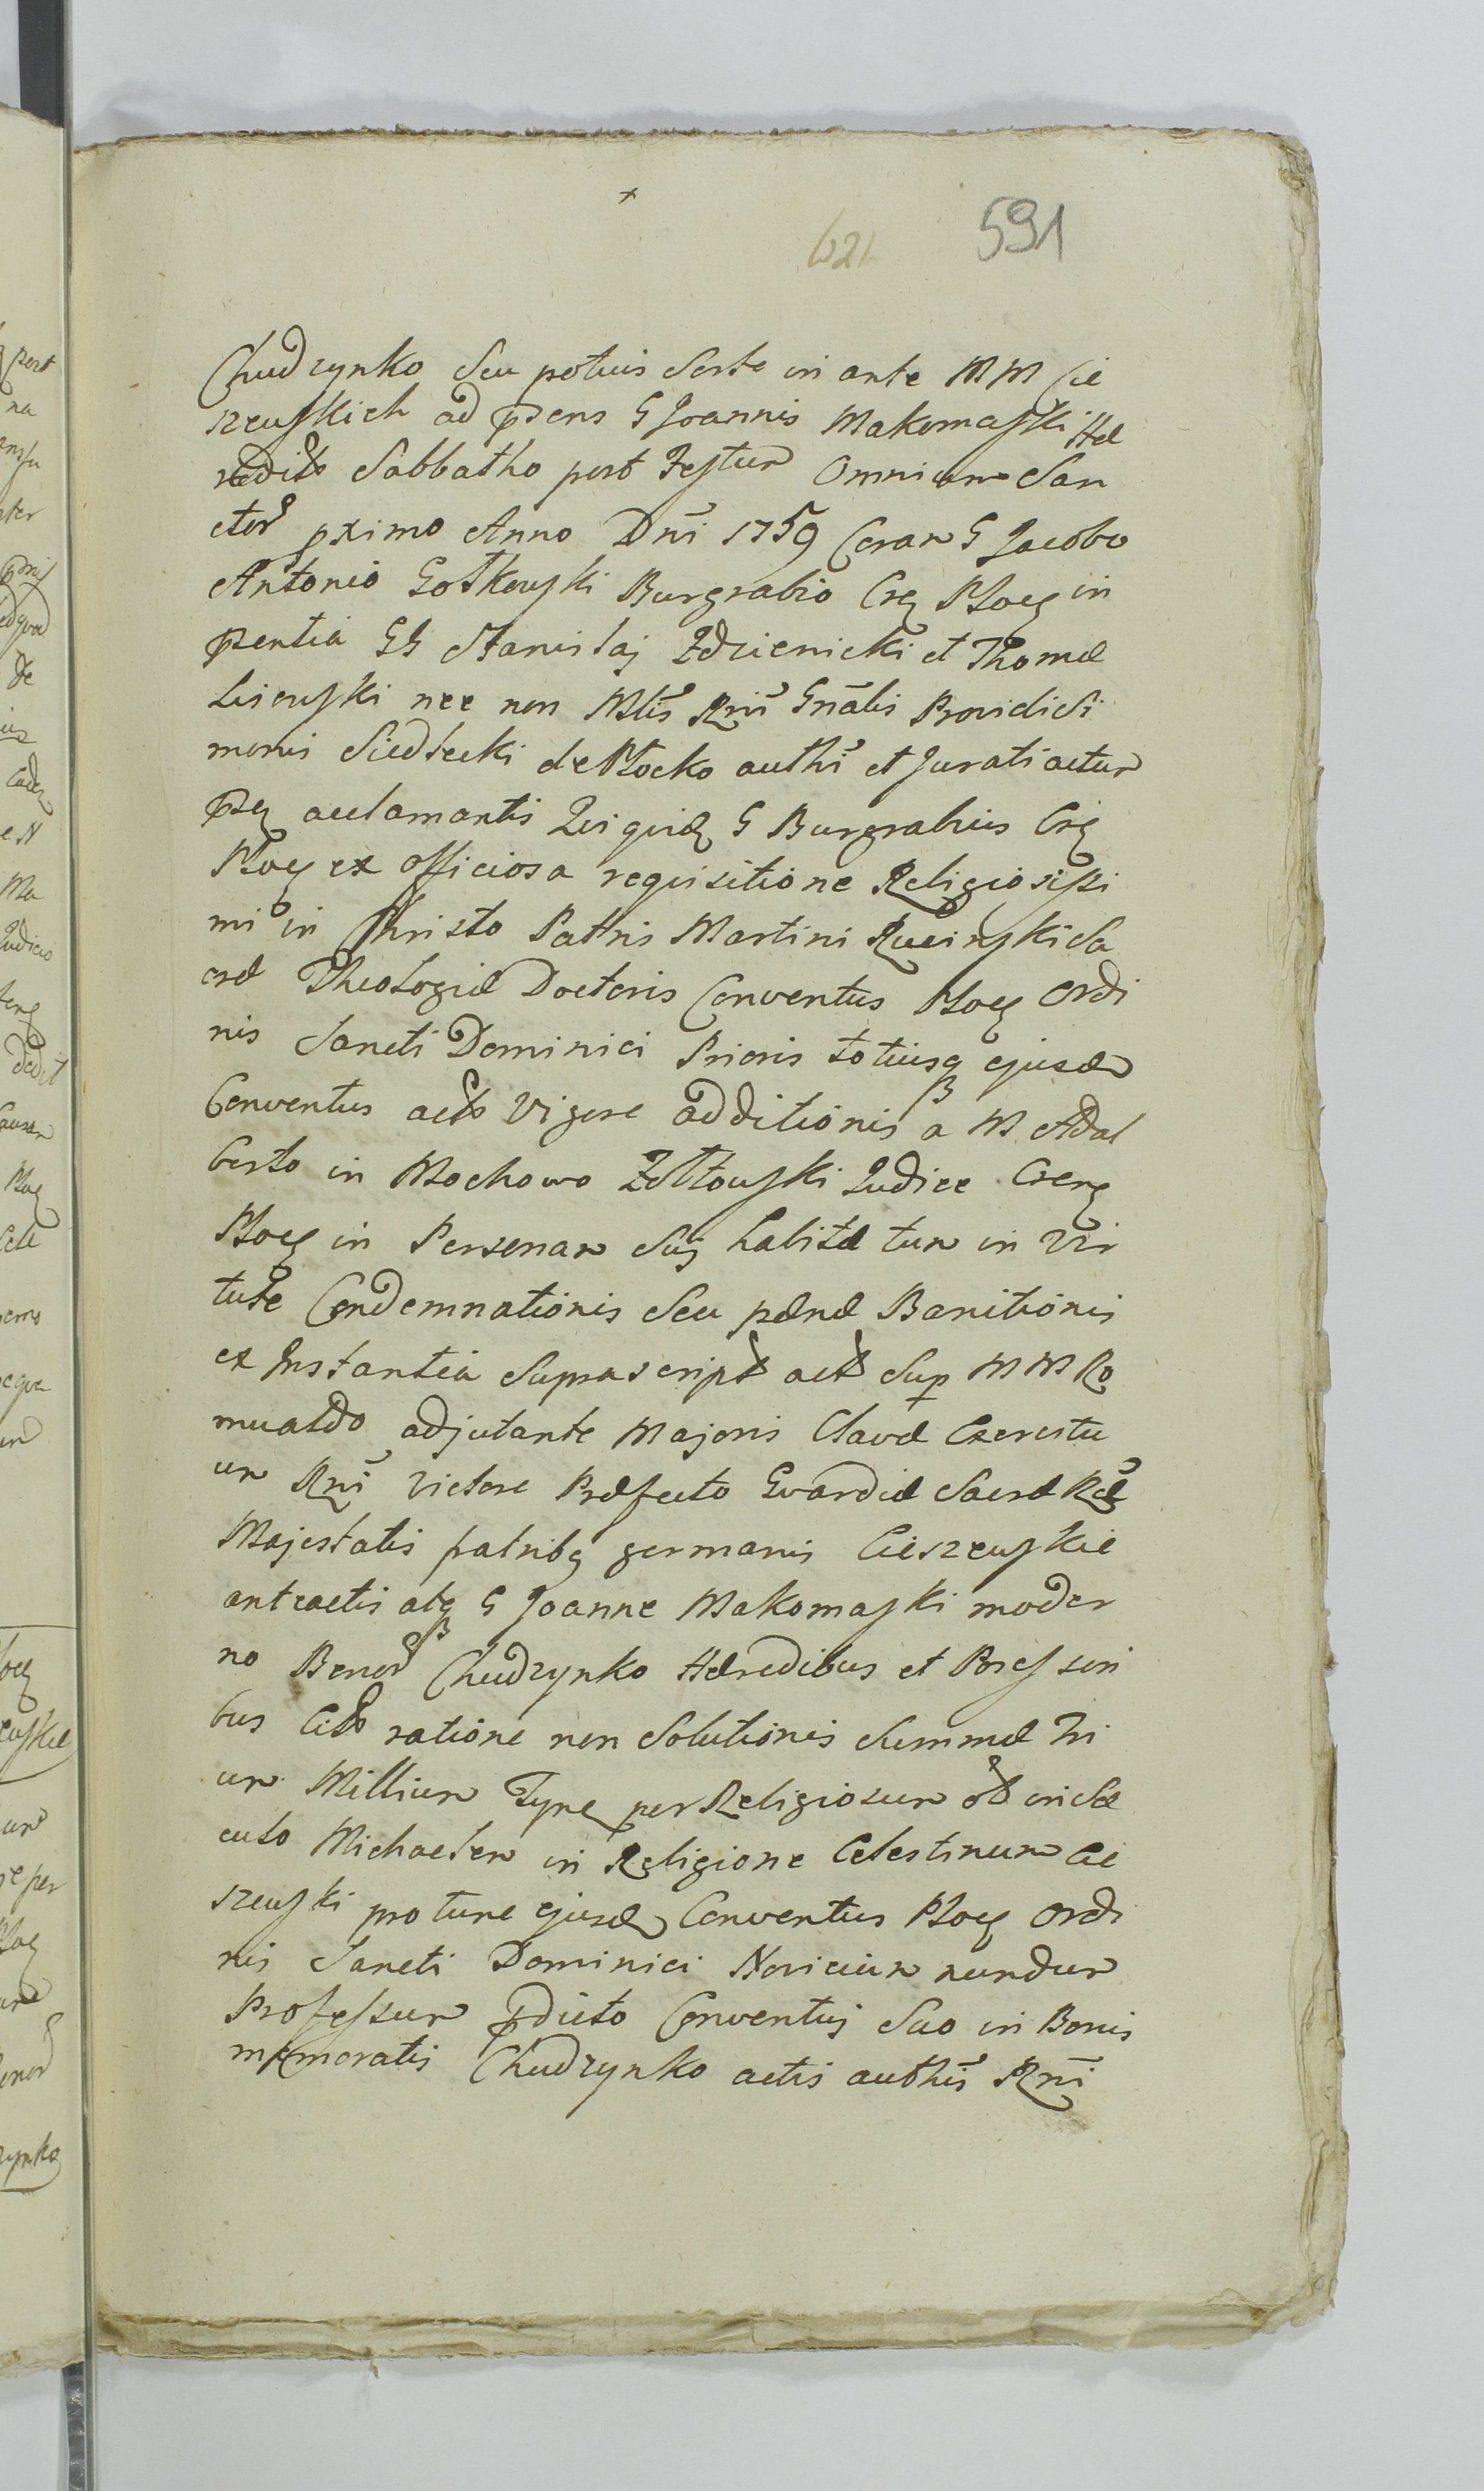 591
621
Chudzynko seu potius Sorte in ante MM Cie
szewskich ad pdens G Joannis Makomaski Hæ
redit Sabbatho post Festum Omnium San
ctor pximo Anno Dni 1759 Coram G Jacobo
Antonio Gotkowski Burgrabio Crg Ploc in
pdentia GG Stanislaj Zdzienicki et Thomæ
Lisewski nec non Mlis Rni Gnalis Providi Si
monis Siedlecki de Plocko authi et Jurati actum
psq acclamantis Quiquid G Burgrabius Crg
Ploc ex officiosa requisitione Religiosissi
mi in Christo Pattris Martini Rucinski Sa
cræ Theologiæ Doctoris Conventus Ploc Ordi
nis Sancti Dominici Prioris totiusq ejusd
Conventus act Vigore additionis a M Adal
berto in Mochowo Zołtowski Judice Crg
Ploc in Personam Suj habitæ tum in Vir
tute Condemnationis Seu pænæ Banitionis
ex Instantia Suprascript act Sup MM Ro
mualdo adjutante Majoris Clavæ Exercitu
um Rni Victore Præfecto Gvardiæ Sacræ Ræ
Majestatis fratribq germanis Cieszewskie
antractis atq G Joanne Makomaski moder
no Bonor Chudzynko Hæredibus et Possessori
bus Cit ratione non Solutionis Summæ Tri
um Millium Tynf per Religiosum olim in Sæ
culo Michaelem in Religione Celestinum Cie
szewski pro tunc ejusd Conventus Ploc Ordi
nis Sancti Dominici Novicium nundum
Professum pdicto Conventuj Suo in Bonis
memoratis Chudzynko actis authis Rni